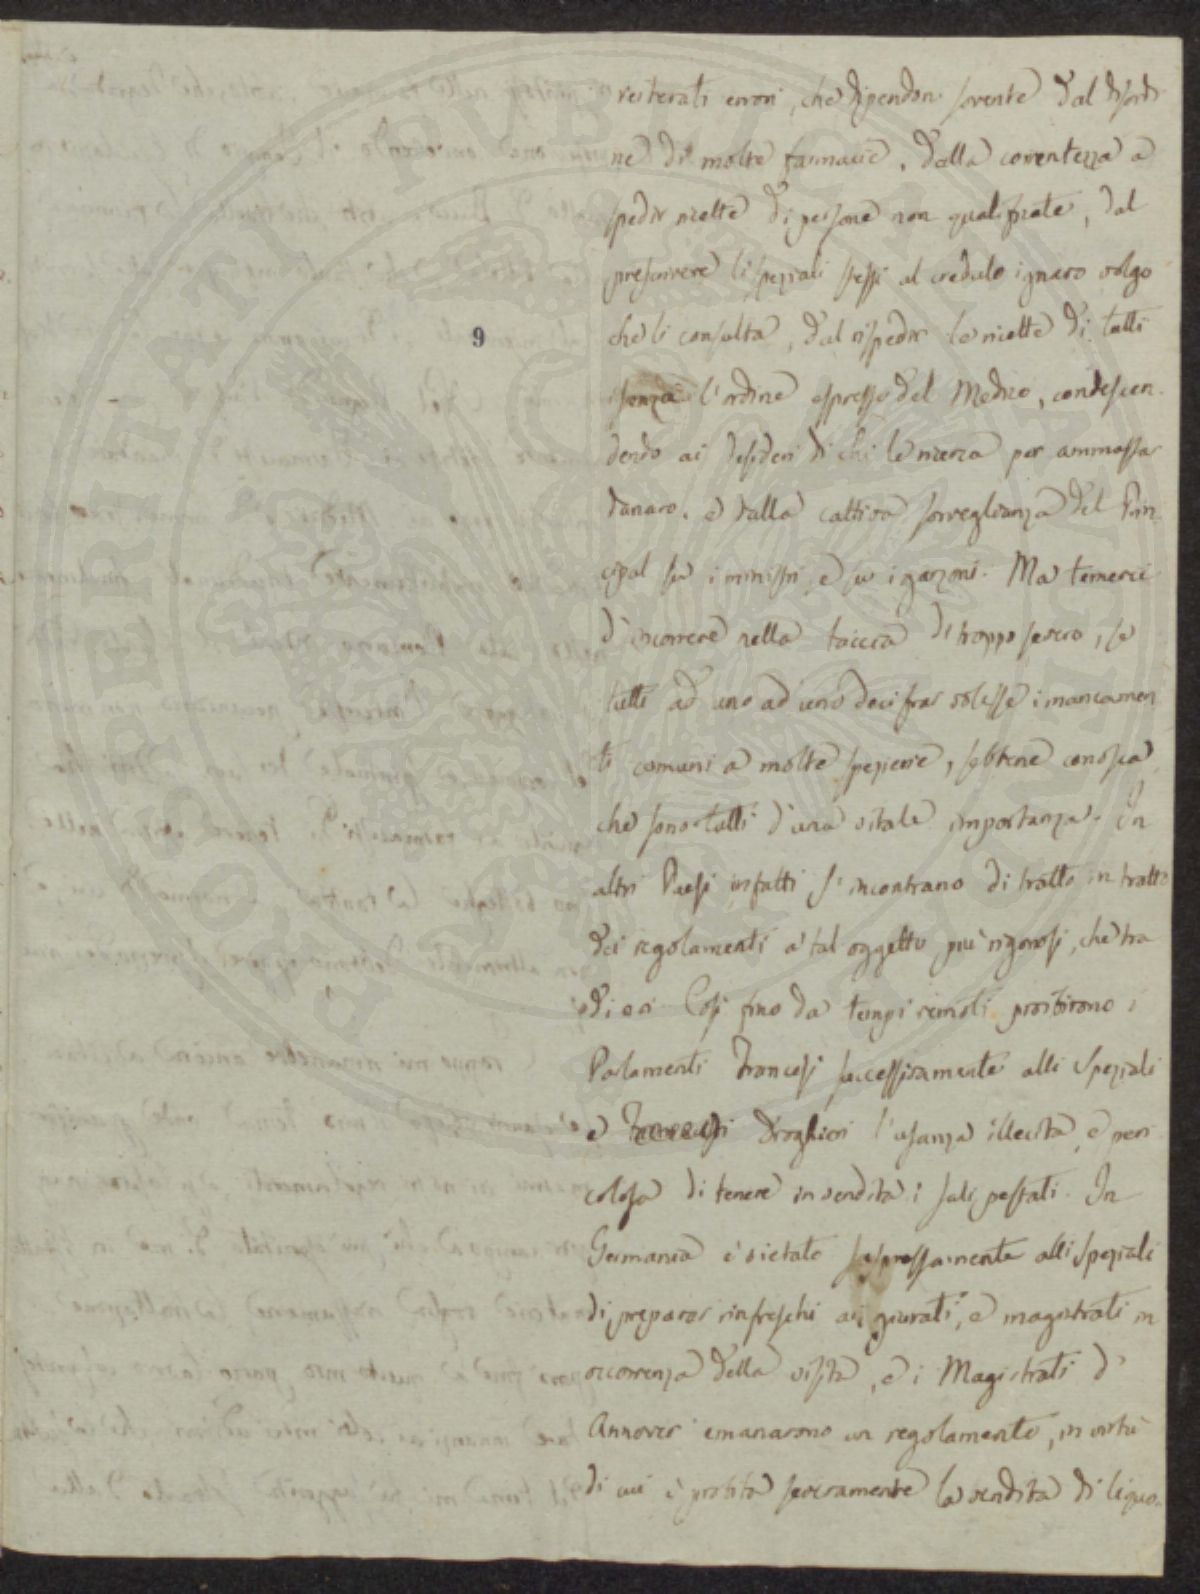 reiterati errori, che dipendon sovente dal disordi
ne di molte farmacie, dalla correntezza a
spedir ricette di persone non qualificate, dal
prescrivere li speziali stessi al credulo ignaro volgo
9
che li consulta, dal rispedir le ricette di tutti
senza l'ordine espresso del Medico, condescen-
dendo ai desideri di chi le ricerca per ammassar
danaro, e dalla cattiva sorveglianza del Prin-
cipal su i ministri, e su i garzoni. Ma temerei
d'incorrere nella taccia di troppo severo, se
tutti ad uno ad uno decifrar volesse i mancamen
ti comuni a molte spezierie, sebbene conosca
che sono tutti d'una vitale importanza. In
altri Paesi infatti s'incontrano di tratto in tratto
dei regolamenti a tal oggetto più rigorosi, che tra
di noi. Così fino da tempi remoti proibirono i
Parlamenti Francesi successivamente alli Speziali
e Droghieri l'usanza illecita, e peri
colosa di tenere in vendita i sali pestati. In
Germania è vietato espressamente alli speziali
di preparar rinfreschi ai giurati, e magistrati in
occorrenza della visita, e i Magistrati d'
Annover emanarono un regolamento, in virtù
di cui è proibita severamente la vendita di liquo-